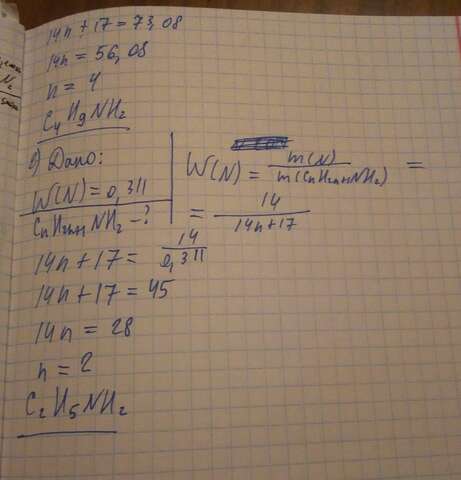 14n + 17 = 73,08
14n = 56,08
n = 4
C₄H₉NH₂
Дано:
W(N) = 0,311
CnH₂n+1NH₂ - ?
W(N) = m(N) / m(CnH₂n+1NH₂) =
= 14 / 14n+17
14n + 17 = 14 / 0,311
14n + 17 = 45
14n = 28
n = 2
C₂H₅NH₂